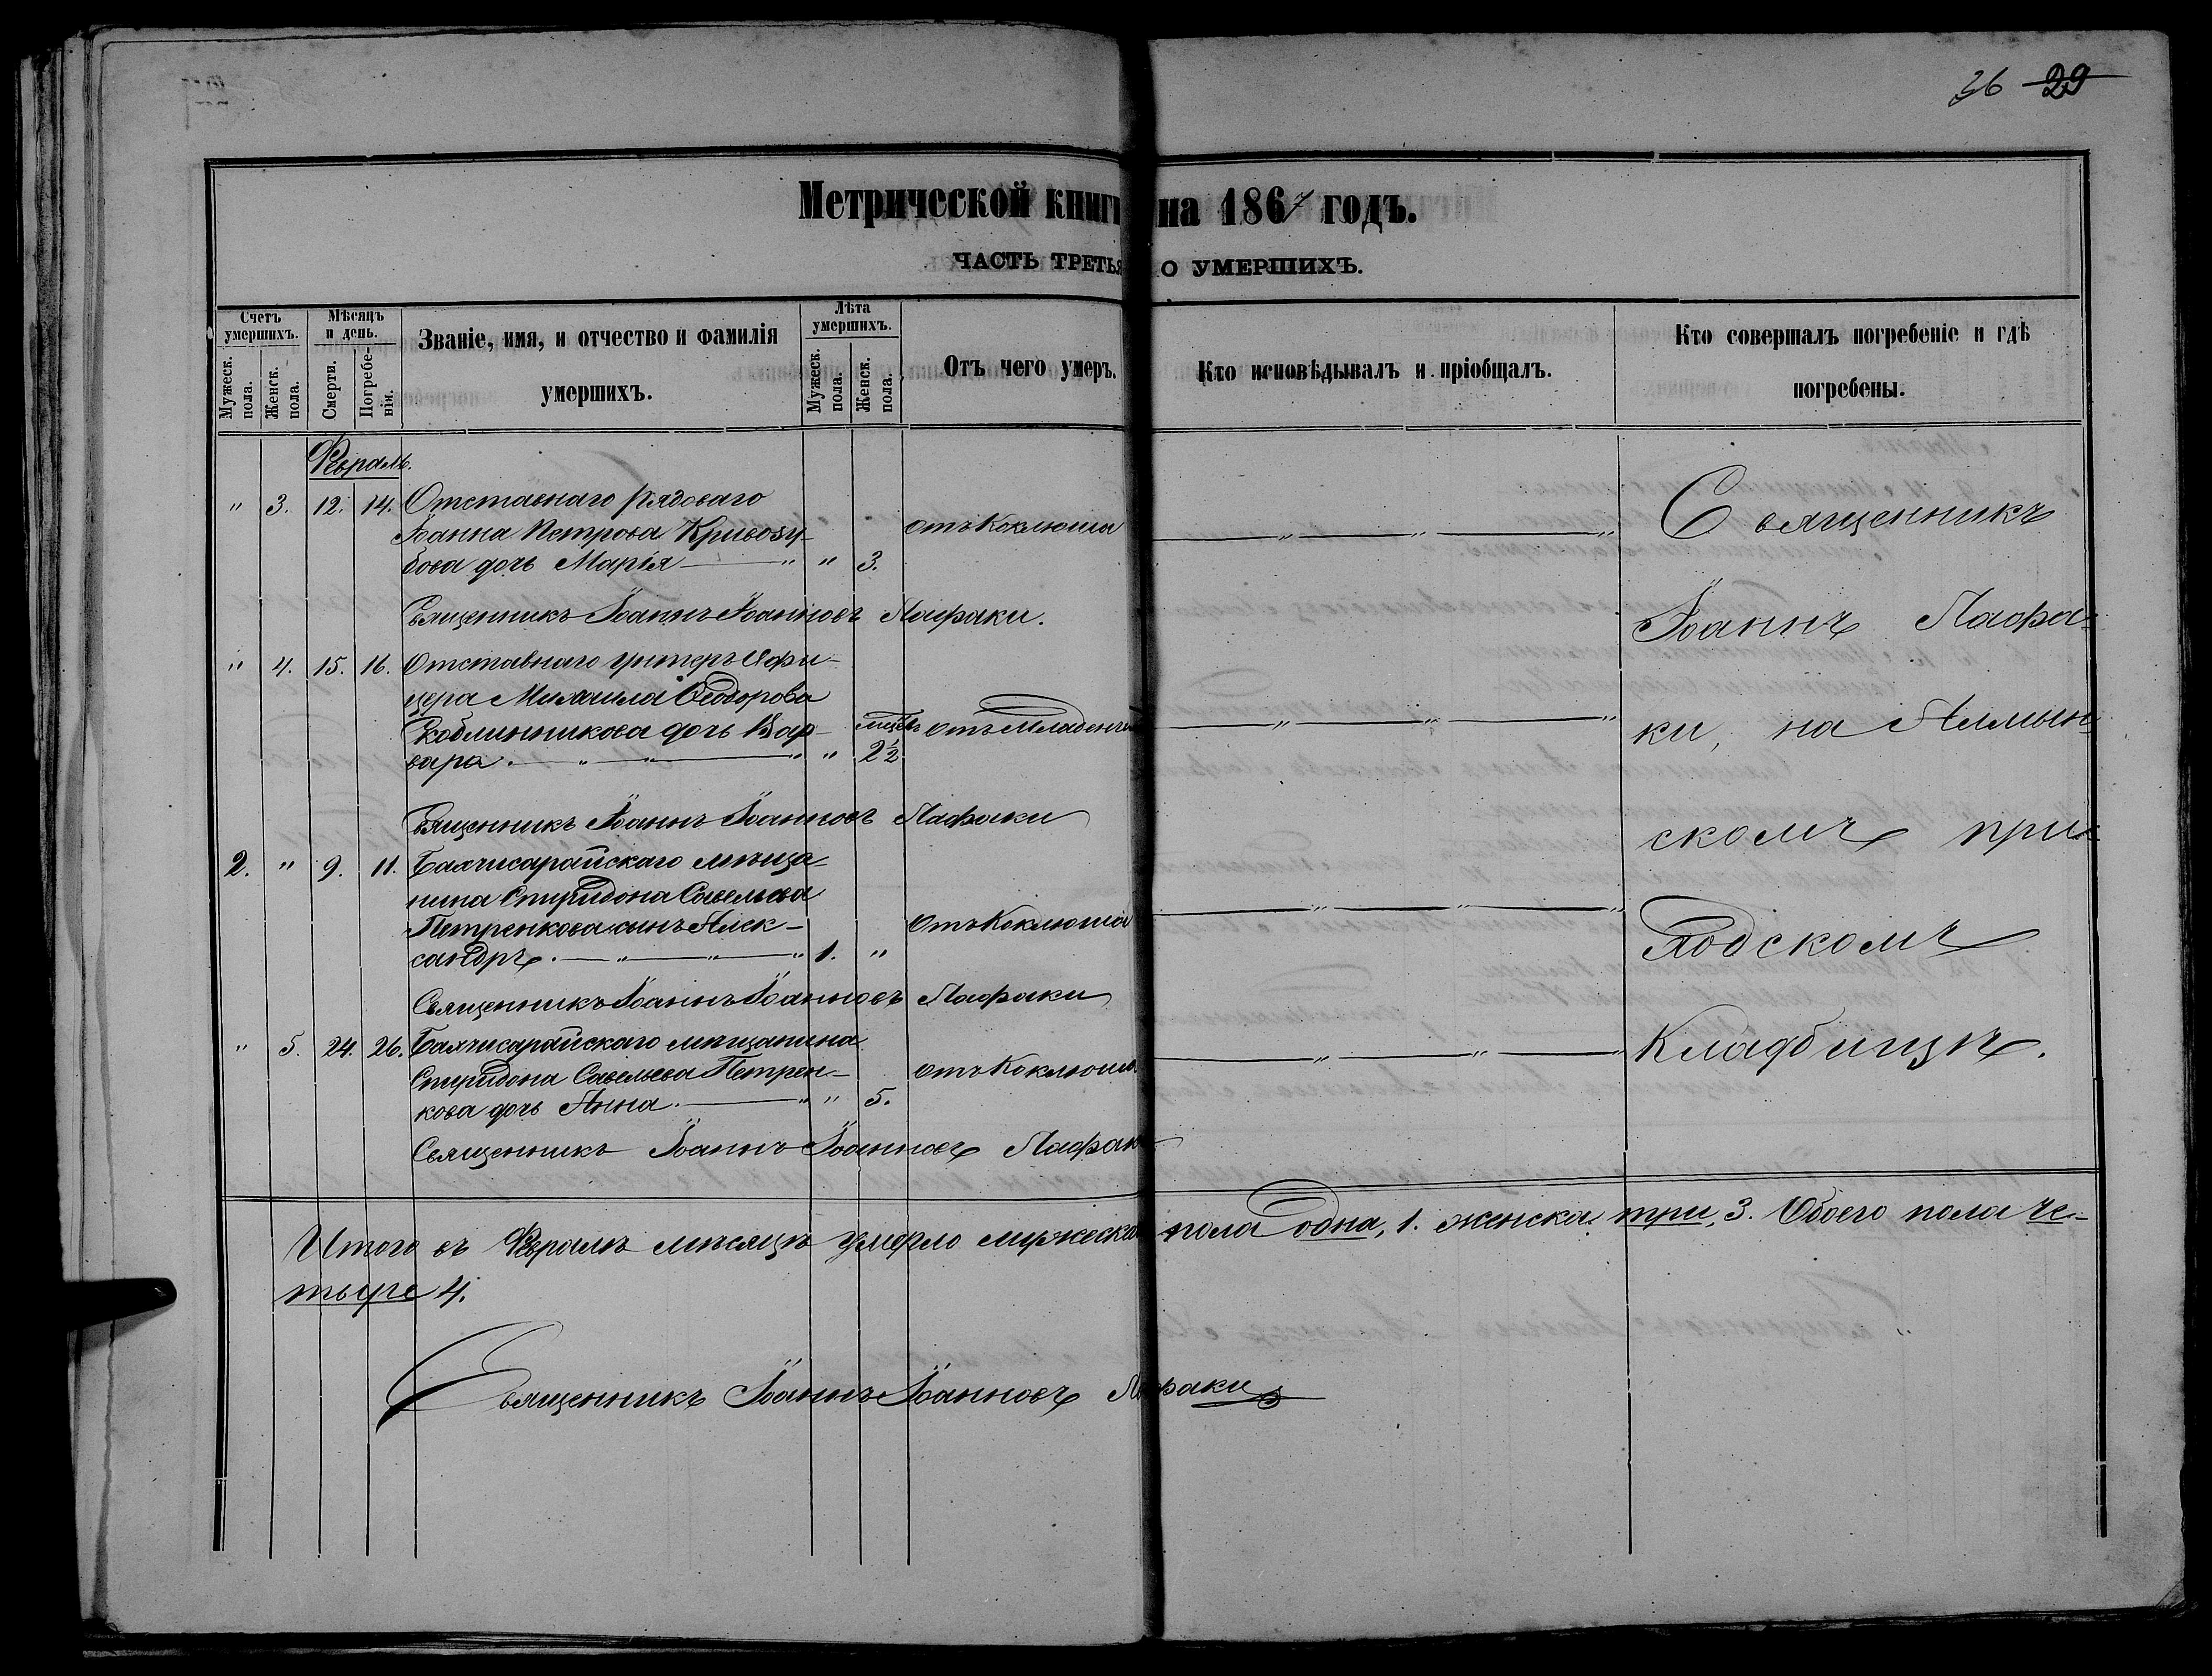 36 29
Метрической книги на 1867 годъ.
ЧАСТЬ ТРЕТЬЯ О УМЕРШИХЪ.
Счетъ умершихъ.
Мужеск. пола.
Женск. пола.
Мѣсяцъ и день.
Смерти.
Погребенія.
Званіе, имя, и отчество и фамилія
умершихъ.
Лѣта умершихъ.
Мужеск. пола.
Женск. пола.
Отъ чего умеръ.
Кто исповѣдывалъ и пріобщалъ.
Кто совершалъ погребеніе и гдѣ
погребены.
Февраль.
" 3. 12. 14. Отставнаго рядоваго
Іоанна Петрова Кривозу-
бова дочь Марія " " 3.
отъ Коклюша
Священникъ Іоаннъ Іоанновъ Лафаки.
" 4. 15. 16. Отставнаго унтеръ Офи-
цера Михаила Ѳеодорова
Скоблинникова дочь Вар-
вара. " " " " мцевъ 2½.
отъ Младенч
Священникъ Іоаннъ Іоанновъ Лафаки
2. " 9. 11. Бахчисарайскаго мѣща-
нина Спиридона Савельева
Петренкова сынъ Алек-
сандръ. " " " 1. "
отъ Коклюша
Священникъ Іоаннъ Іоанновъ Лафаки
" 5. 24. 26. Бахчисарайскаго мѣщанина
Спиридона Савельева Петрен-
кова дочь Анна. " " 5.
отъ Коклюша
Священникъ Іоаннъ Іоанновъ Лафаки
Священникъ
Іоаннъ Лафа-
ки, на Алмин-
скомъ при-
ходскомъ
Кладбищѣ.
Итого въ Февралѣ мѣсяцѣ умерло мужеска пола одна, 1. женска. три, 3. Обоего пола че-
тыре 4.
Священникъ Іоаннъ Іоанновъ Лафаки